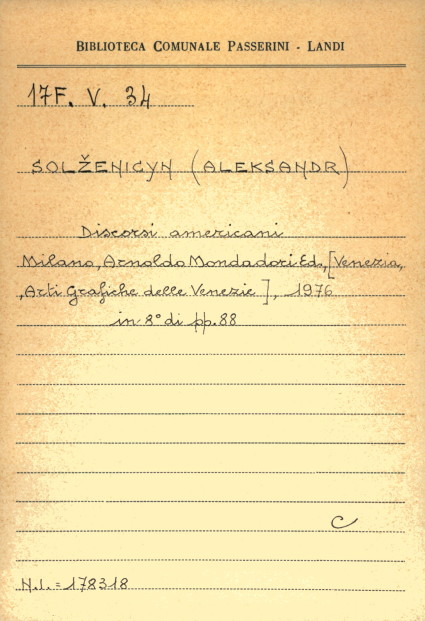 BIBLIOTECA COMUNALE PASSERINI - LANDI
17F. V. 34
SOLŽENICYN (ALEKSANDR)
Discorsi americani
Milano, Arnoldo Mondadori Ed., [Venezia,
Arti Grafiche delle Venezie], 1976
in 8° di pp. 88
C
N.I. = 178318